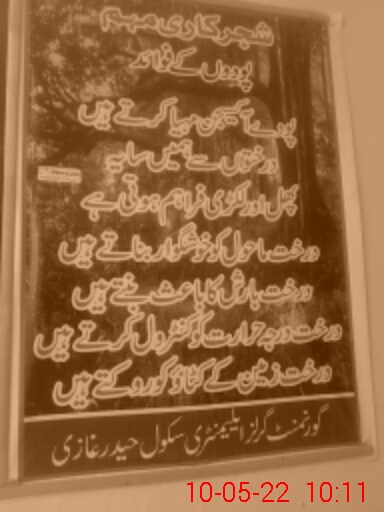 شجر کاری مہم
پودوں کے فوائد
پودے آکسیجن مہیا کرتے ہیں
درختوں سے ہمیں سایہ
پھل اور لکڑی فراہم ہوتی ہے
درخت ماحول کو خوشگوار بناتے ہیں
درخت بارش کا باعث بنتے ہیں
درخت درجہ حرارت کو کنٹرول کرتے ہیں
درخت زمین کے کٹاؤ کو روکتے ہیں
گورنمنٹ گرلز ایلیمنٹری سکول حیدر غازی
10-05-22 10:11